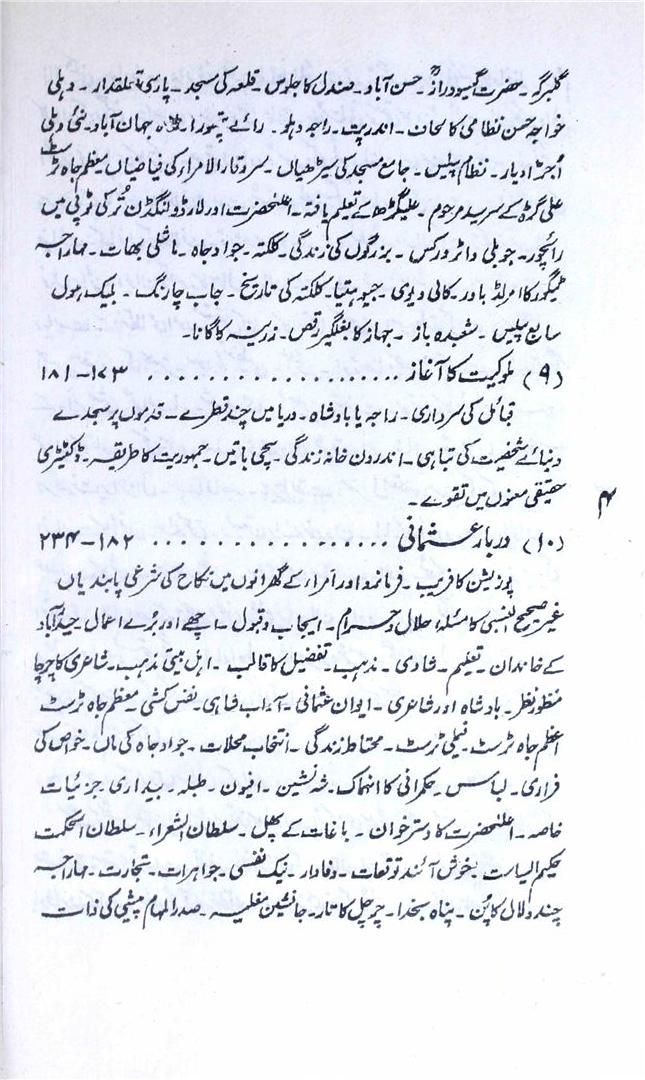 گلبرگہ۔ حضرت گیسو درازؒ۔ حسن آباد۔ صندل کا جلوس۔ قلعہ کی مسجد۔ پارسی تعلقدار۔ دہلی
خواجہ حسن نظامی کا لحان۔ اندرپت۔ راجہ دہلو۔ رائے پتھورا۔ جہان آباد۔ نئی دہلی
اُجڑا دیار۔ نظام پیلس۔ جامع مسجد کی سیڑھیاں۔ سر وقار الامراء کی فیاضیاں۔ معظم جاہ ٹرسٹ
علی گڑھ کے سر سید مرحوم۔ علیگڑھ کے تعلیم یافتہ۔ اعلیٰحضرت اور لارڈ ولنگڈن تُرکی ٹوپی میں
رائچور۔ جوبلی واٹر ورکس۔ بزرگوں کی زندگی۔ کلکتہ۔ جواد جاہ۔ ماشلی بھات۔ مہاراجہ
ٹیگور کا امرلڈ باور۔ کالی دیوی۔ جیو ہتیا۔ کلکتہ کی تاریخ۔ جاب چارنگ۔ بلیک ہول
سابع پیلس۔ شعبدہ باز۔ جہاز کا بغلگیر رقص۔ زرینہ کا گانا۔
(۹) ملوکیت کا آغاز ................... ۱۷۳-۱۸۱
قبائل کی سرداری۔ راجہ یا بادشاہ۔ دریا میں چند قطرے۔ قدموں پر سجدے
دنیائے شخصیت کی تباہی۔ اندرون خانہ زندگی۔ سچی باتیں۔ جمہوریت کا طریقہ۔ ڈکٹیٹری
حقیقی معنوں میں تقوے۔
۴
(۱۰) دربار عثمانی ................. ۱۸۲-۲۳۴
پوزیشن کا فریب۔ فرمانروا اور اُمراء کے گھرانوں میں نکاح کی شرعی پابندیاں
غیر صحیح النسبی کا مسئلہ حلال و حرام۔ ایجاب و قبول۔ اچھے اور بُرے اعمال۔ حیدرآباد
کے خاندان۔ تعلیم۔ شادی۔ مذہب۔ تفضیل کا قالب۔ اہل بیتی مذہب۔ شاعری کا چرچا
منظور نظر۔ بادشاہ اور شاعری۔ ایوان عثمانی۔ آداب شاہی۔ نفس کشی۔ معظم جاہ ٹرسٹ
اعظم جاہ ٹرسٹ۔ فیملی ٹرسٹ۔ محتاط زندگی۔ انتخاب محلات۔ جواد جاہ کی ماں۔ خواص کی
فراری۔ لباس۔ حکمرانی کا انہماک۔ شہ نشین۔ افیون۔ طبلہ۔ بیداری۔ جزئیات
خاصہ۔ اعلیٰحضرت کا دسترخوان۔ باغات کے پھل۔ سلطان الشعراء۔ سلطان الحکمت
حکیم السیاست۔ خوش آئند توقعات۔ وفادار۔ نیک نفسی۔ جواہرات۔ تجارت۔ مہاراجہ
چندولال کا پُن۔ پناہ بخدا۔ چرچل کا تار۔ جانشین مغلیہ۔ صدر المہام پیشی کی ذات